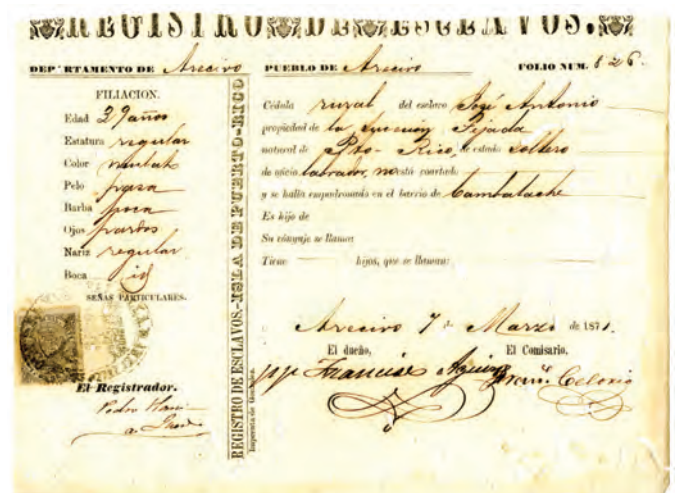 REGISTRO DE ESCLAVOS.
DEP'RTAMENTO DE Arecivo PUEBLO DE Arecivo FOLIO NUM. 826.
FILIACION.
Edad 39 años
Estatura regular
Color mulato
Pelo pasa
Barba poca
Ojos pardos
Nariz regular
Boca id
SEÑAS PARTICULARES.
El Registrador.
Pedro
REGISTRO DE ESCLAVOS.-ISLA DE PUERTO-RICO
Imprenta de
Cédula rural del esclavo José Antonio
propiedad de la Sucesión Tejada
natural de Pto-Rico, de estado soltero
de oficio labrador, no está coartado
y se halla empadronado en el barrio de Cambalache
Es hijo de
Su cónyuje se llama
Tiene hijos, que se llaman:
Arecivo 7 de Marzo de 1871.
El dueño, El Comisario,
Francisco Celonio